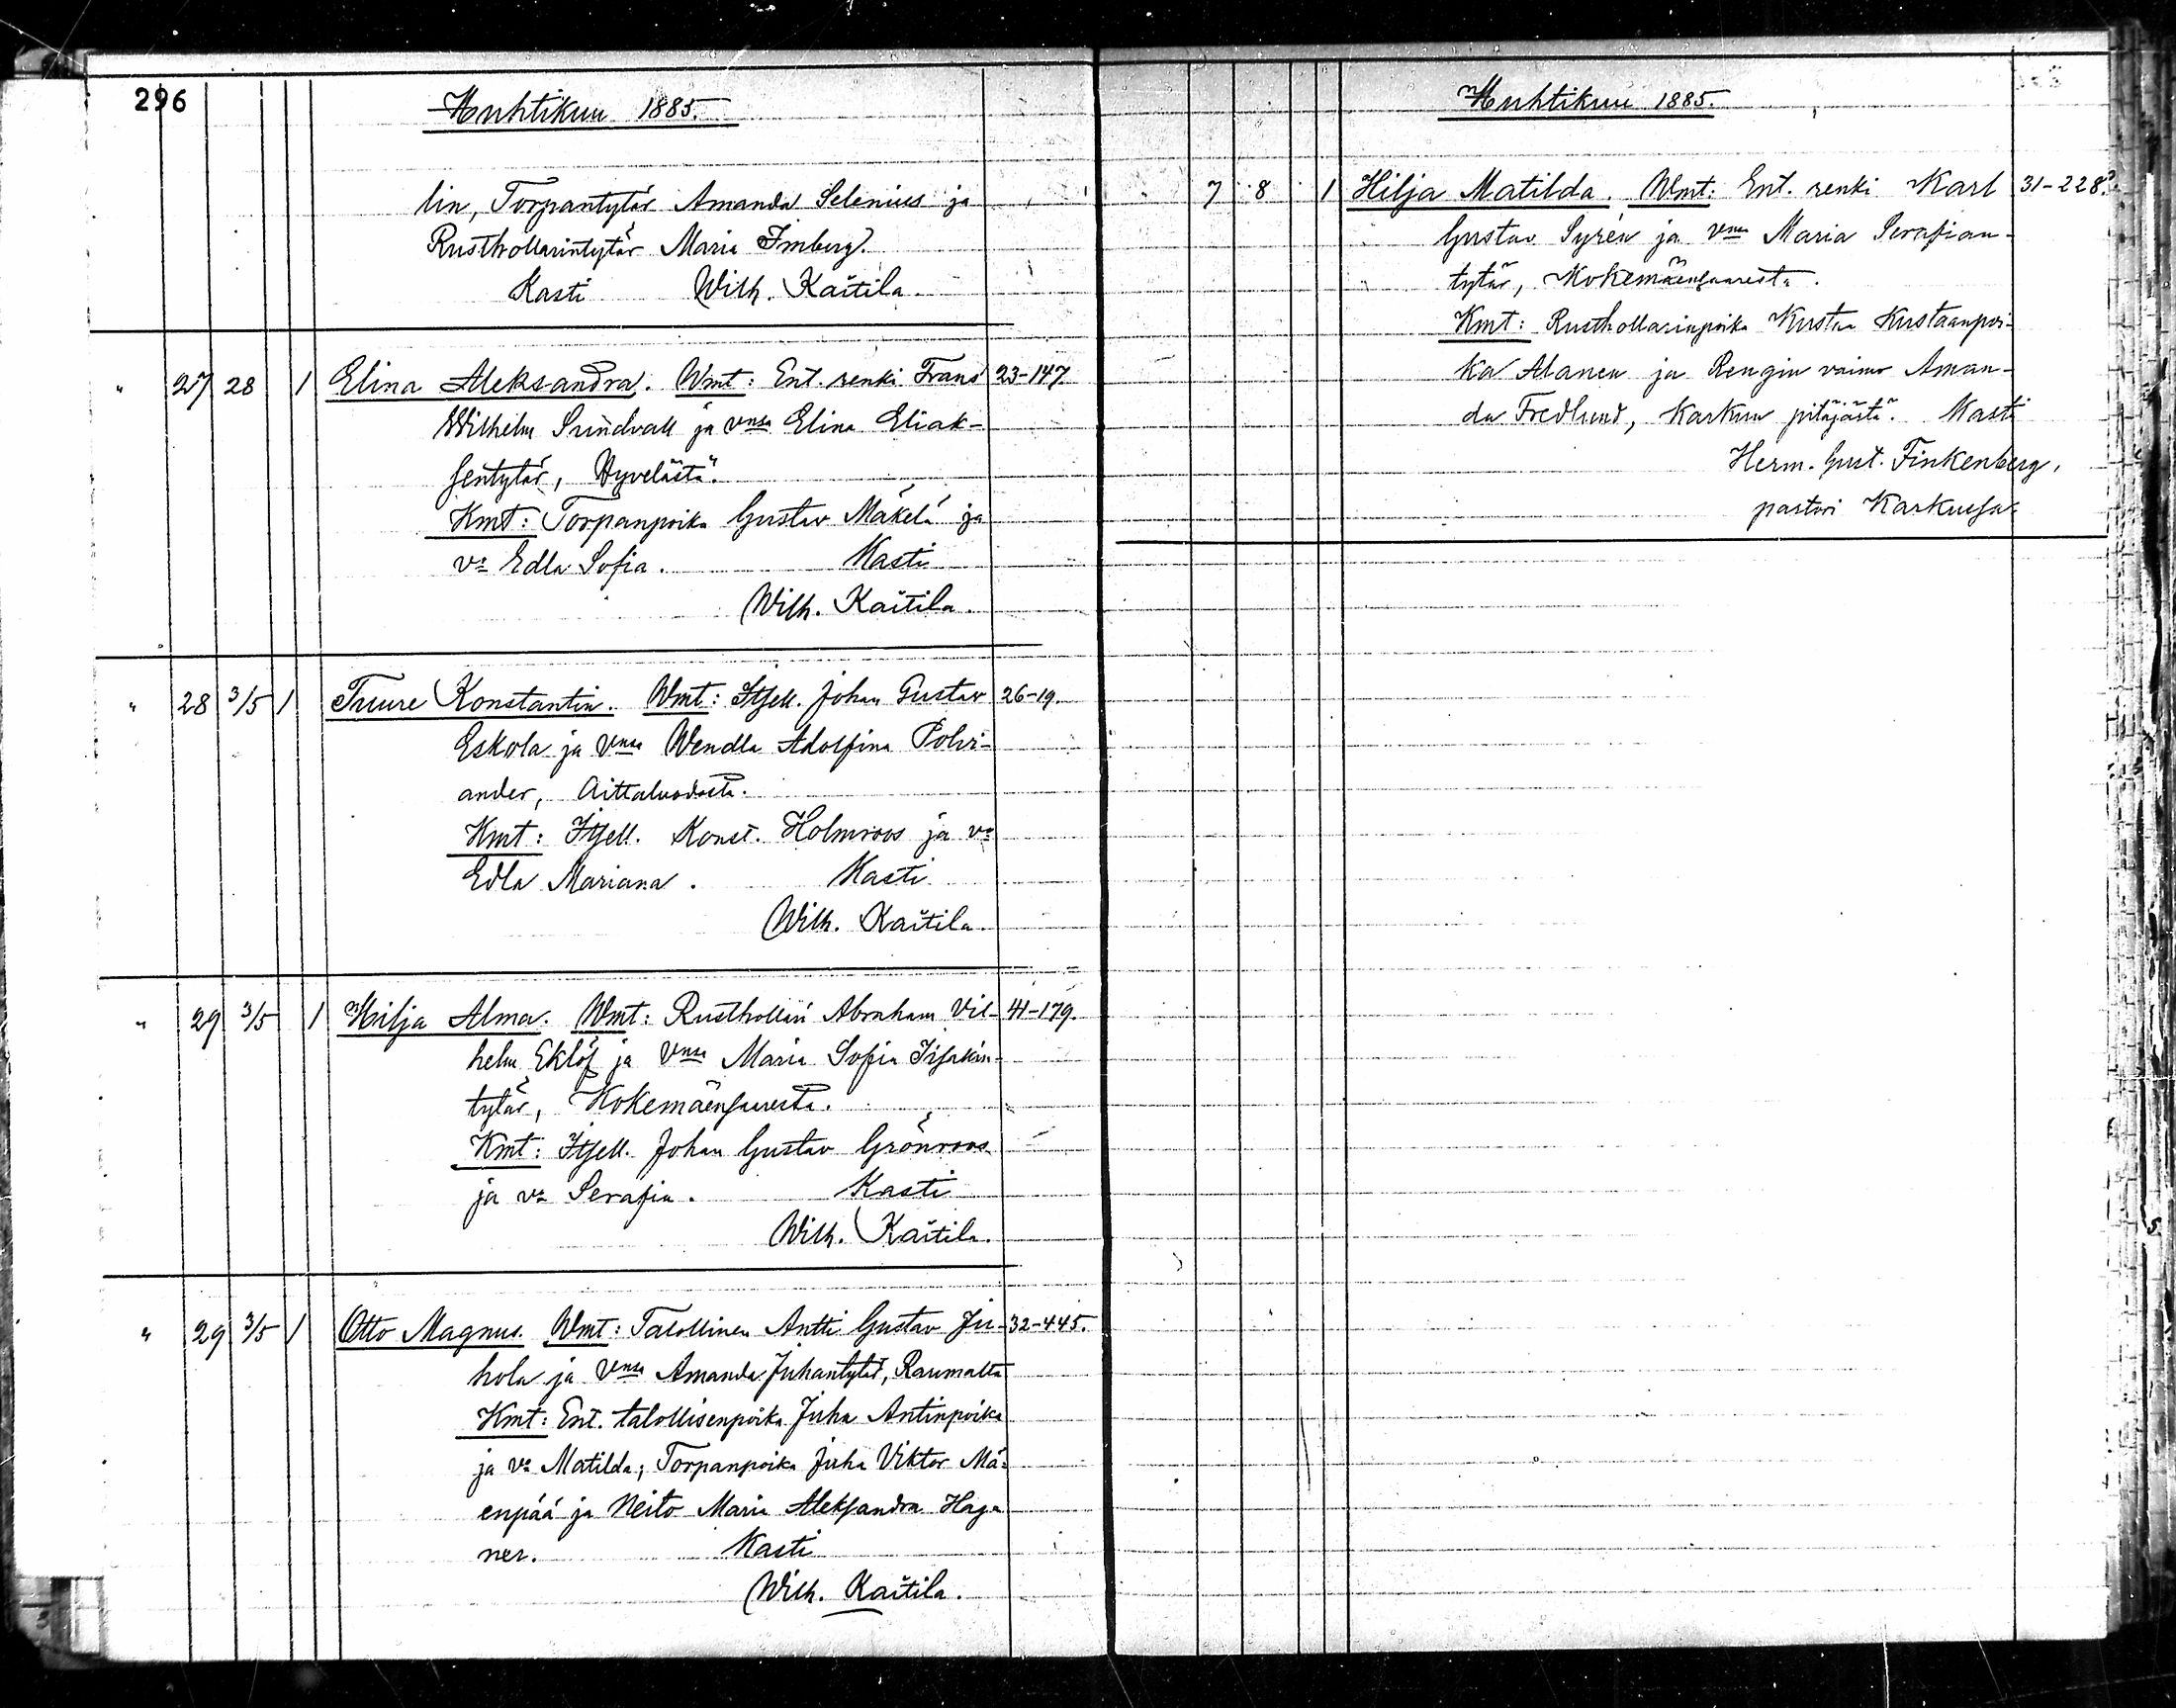 296
Huhtikuu 1885.
lin, Torpantytär Amanda Selenius ja
Rusthollarintytär Maria Imberg).
Kasti Wilh. Kaitila.
" 27 28 1 Elina Aleksandra. Wmt: Ent. renki Frans 23-147
Wilhelm Sundvall ja vnsa Elina Eliak-
sentytär, Hyvelästä.
Kmt: Torpanpoika Gustav Mäkelä ja
va Edla Sofia. Kasti
Wilh. Kaitila.
" 28 3/5 1 Tuure Konstantin. Wmt: Itsell. Johan Gustav 26-19.
Eskola ja Vnsa Wendla Adolfina Polvi-
ander, Aittaluodosta.
Kmt: Itsell. Konst. Holmroos ja va
Edla Mariana. Kasti
Wilh. Kaitila.
" 29 3/5 1 Hilja Alma. Wmt: Rusthollari Abraham Vil- 41-179.
helm Eklöf ja Vnsa Maria Sofia Iisakin-
tytär, Kokemäensaaresta.
Kmt: Itsell. Johan Gustav Grönroos
ja va Serafia. Kasti
Wilh. Kaitila.
" 29 3/5 1 Otto Magnus. Wmt: Talollinen Antti Gustav Ju- 32-445.
hola ja Vnsa Amanda Juhantytär, Raumalta
Kmt: Ent. talollisenpoika Juha Antinpoika
ja va Matilda; Torpanpoika Juha Viktor Mä-
enpää ja Neito Maria Aleksandra Haga
ner. Kasti
Wilh. Kaitila.
Huhtikuu 1885.
7 8 1 Hilja Matilda. Wmt: Ent. renki Karl 31-228.
Gustav Syrén ja vnsa Maria Serafian-
tytär, Kokemäensaaresta.
Kmt: Rusthollarinpoika Kustaa Kustaanpoi-
ka Alanen ja Rengin vaimo Aman-
da Fredlund, Karkun pitäjästä. Kasti
Herm. Gust. Finkenberg,
pastori Karkussa.